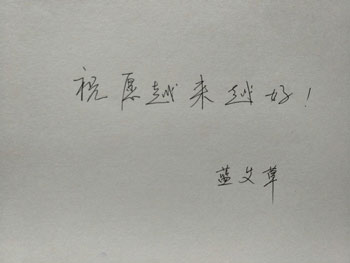 祝愿越来越好！
蓝文草